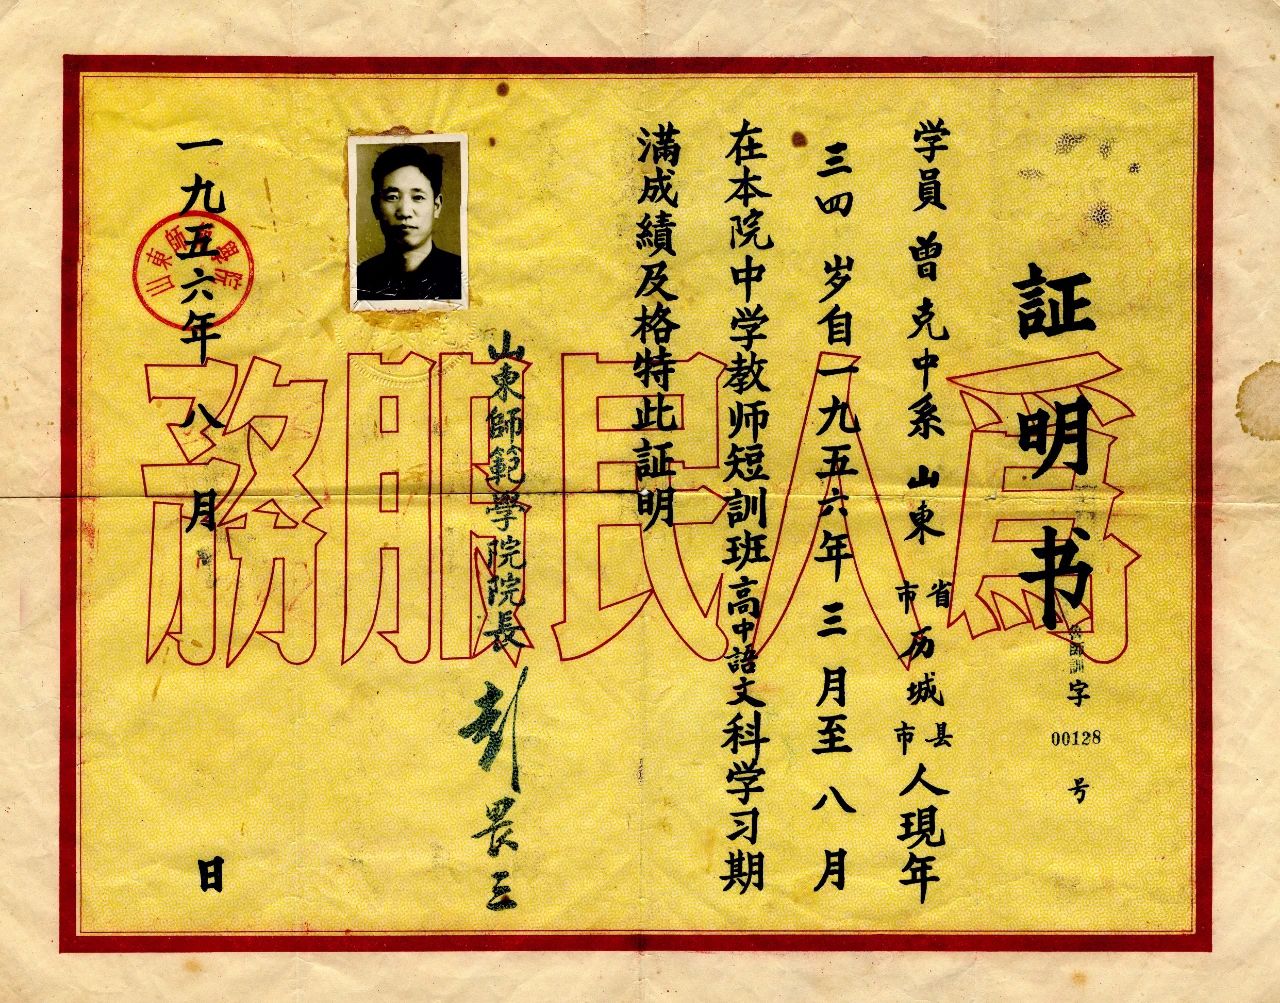 証明书
鲁師訓字
00128
号
学員曾克中系山東省市历城县市人現年
三四岁自一九五六年三月至八月
在本院中学教师短訓班高中語文科学习期
满成績及格特此証明
山東師範學院院長
彭畏三
一九五六年八月日
山東師範學院
爲人民服務